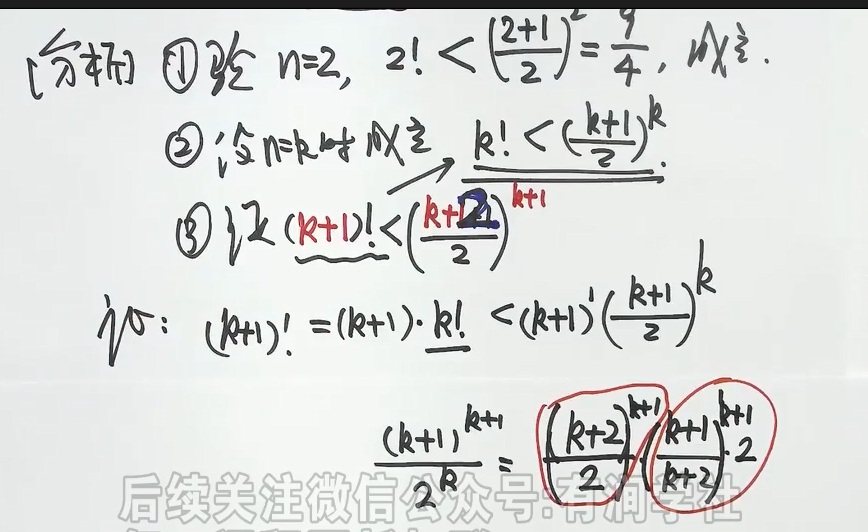 [分析] ① 验 n=2, 2! < ((2+1)/2)^2 = 9/4, 成立.
② 设 n=k 时 成立 k! < ((k+1)/2)^k.
③ 证 (k+1)! < ((k+2)/2)^(k+1)
而: (k+1)! = (k+1)·k! < (k+1)^1 ((k+1)/2)^k
(k+1)^(k+1)/2^k = ((k+2)/2)^(k+1) · ((k+1)/(k+2))^(k+1) · 2
后续关注微信公众号:有润学社